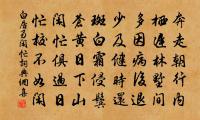 奔走朝行内
棲遲林墅間
多因病後退
少及健時還
斑白霜侵鬢
蒼黄日下山
閑忙俱過日
忙校不如閑
白居易閑忙詞典網